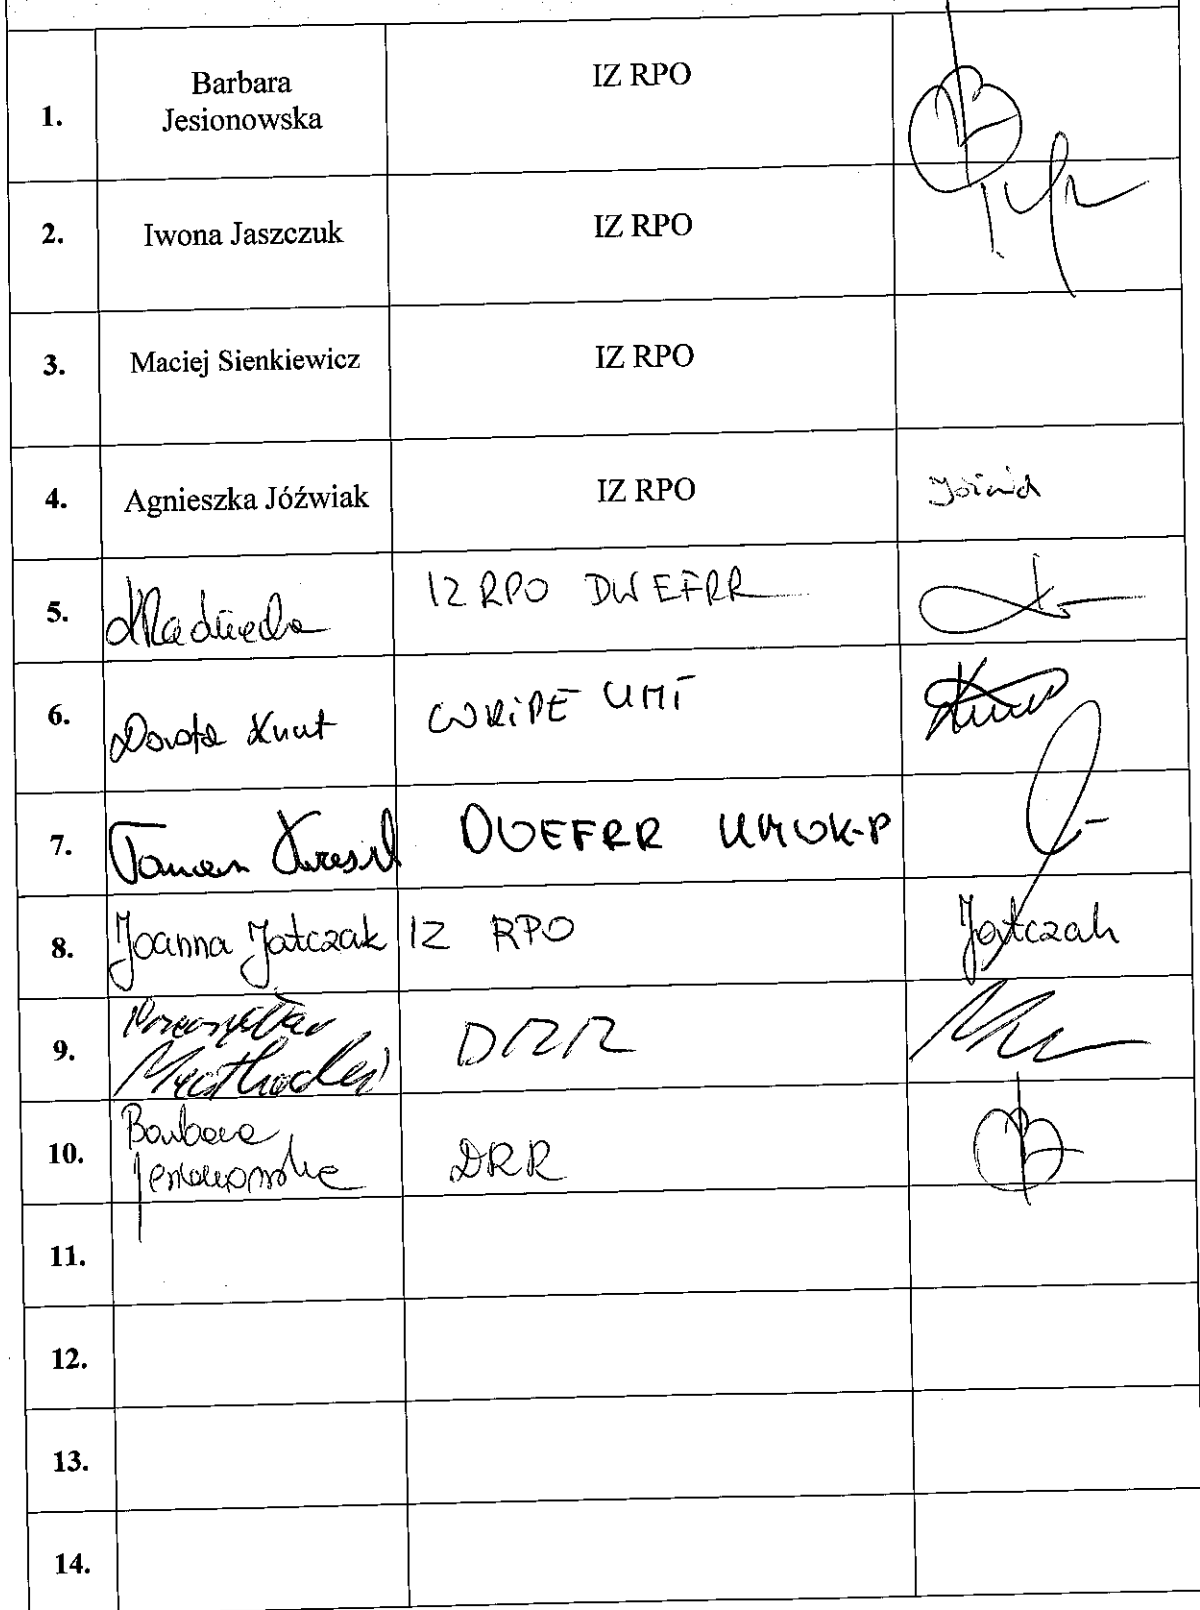 1.
Barbara
Jesionowska
IZ RPO
2.
Iwona Jaszczuk
IZ RPO
3.
Maciej Sienkiewicz
IZ RPO
4.
Agnieszka Jóźwiak
IZ RPO
5.
IZ RPO DW EFRR
6.
Dorota Knut
WRiPE UMT
7.
DWEFRR UMWK-P
8.
Joanna Jatczak
IZ RPO
Jatczak
9.
DRR
10.
Barbara
Jesionowska
DRR
11.
12.
13.
14.